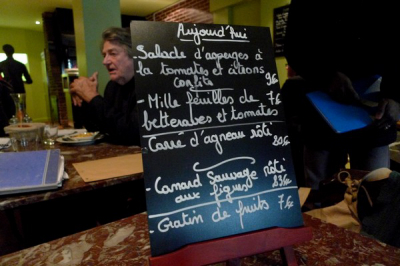 Aujourd'hui
Salade d'asperges à
la tomates et citrons
confits 9€
- Mille feuilles de 7€
betteraves et tomates
- Carré d'agneau rôti
20,50€
- Canard sauvage rôti
aux figues 23,50€
- Gratin de fruits 7,50€